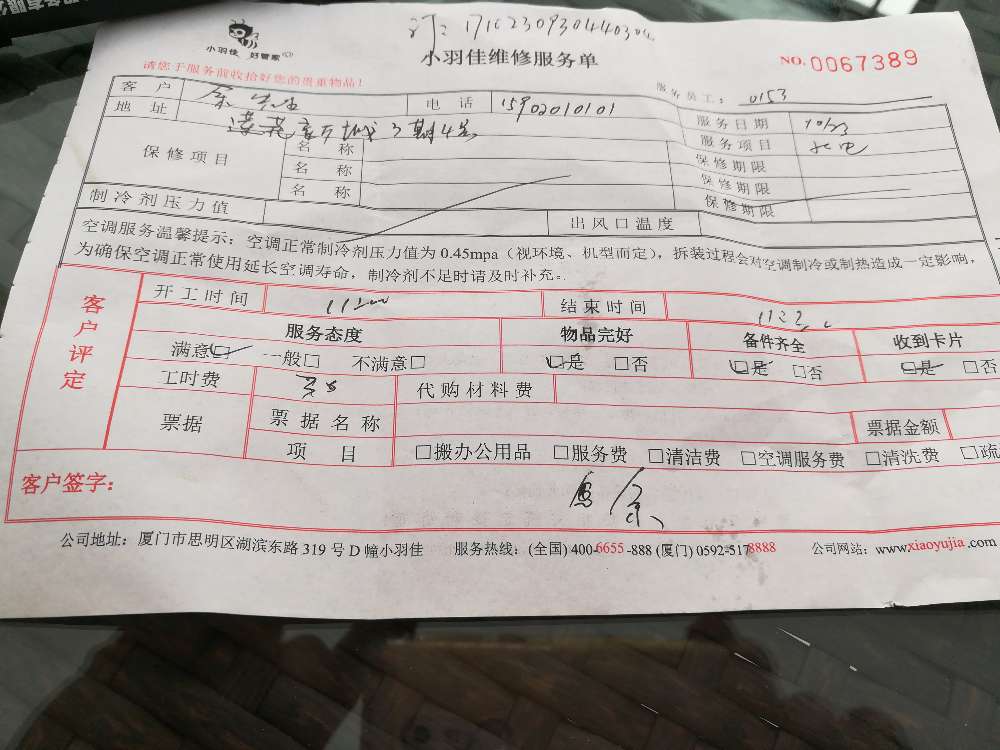 订:1716230930440304
小羽佳 好管家
小羽佳维修服务单
NO.0067389
请您于服务前收拾好您的贵重物品!
服务员工: 0153
客 户 余先生 电 话 15902010101 服务日期 10/23
地 址 莲花新城3期4号 服务项目 水电
保修项目 名 称 保修期限
名 称 保修期限
名 称 保修期限
制冷剂压力值 出风口温度
空调服务温馨提示:空调正常制冷剂压力值为 0.45mpa(视环境、机型而定),拆装过程会对空调制冷或制热造成一定影响,
为确保空调正常使用延长空调寿命,制冷剂不足时请及时补充。
客户评定
开工时间 11:00 结束时间
服务态度 物品完好 备件齐全 收到卡片
满意□ 一般□ 不满意□ □是 □否 □是 □否 □是 □否
工时费 代购材料费
票据 票据名称 票据金额
项 目 □搬办公用品 □服务费 □清洁费 □空调服务费 □清洗费 □疏
客户签字:
公司地址:厦门市思明区湖滨东路 319 号 D 幢小羽佳 服务热线:(全国)400-6655-888 (厦门)0592-5178888 公司网站:www.xiaoyujia.com